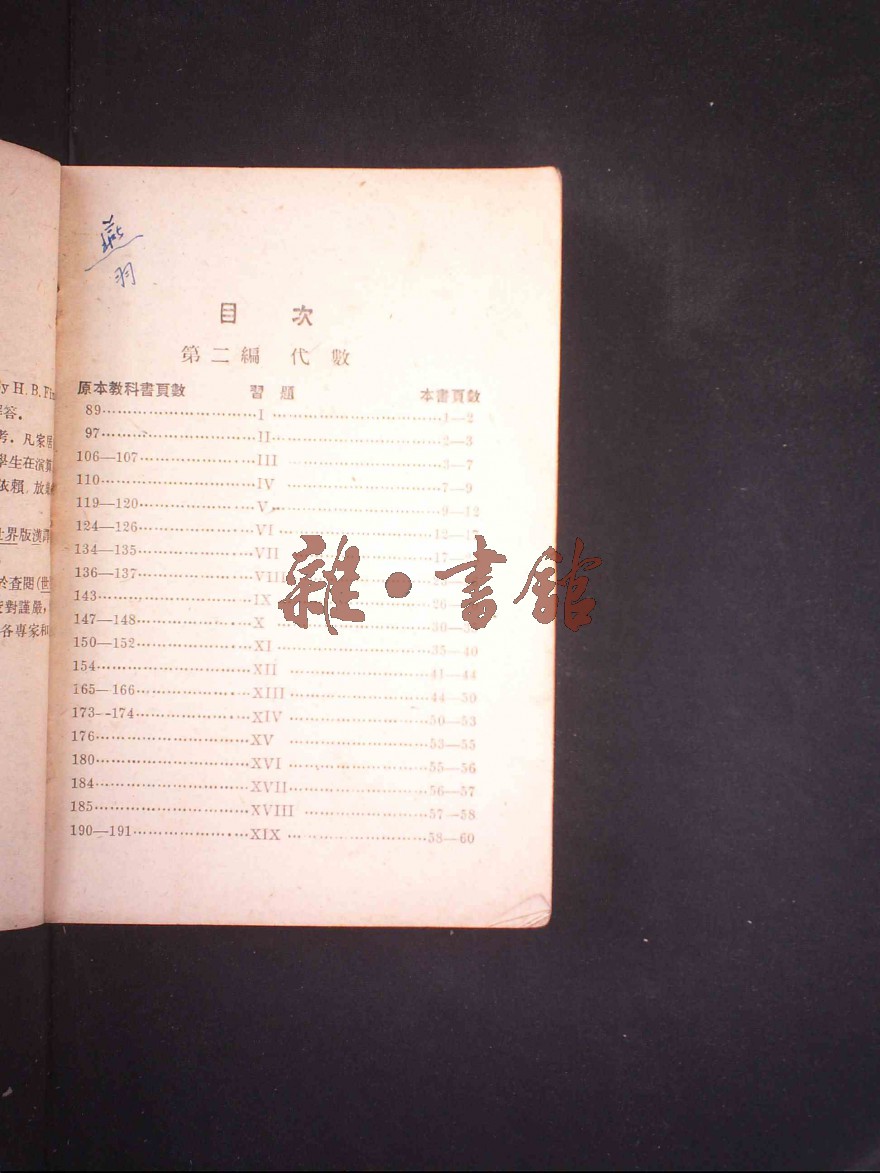 y H. B. Fin
答.
考. 凡家居
學生在演算
依賴, 放
世界版漢譯
於查閱(世
校對謹嚴,
各專家和
燕
羽
目 次
第二編 代數
原本教科書頁數 習題 本書頁數
89 I 1—2
97 II 2—3
106—107 III 3—7
110 IV 7—9
119—120 V 9—12
124—126 VI 12—17
134—135 VII 17
136—137 VIII
143 IX 26
147—148 X 30
150—152 XI 35—40
154 XII 41—44
165—166 XIII 44—50
173—174 XIV 50—53
176 XV 53—55
180 XVI 55—56
184 XVII 56—57
185 XVIII 57—58
190—191 XIX 58—60
雜·書館